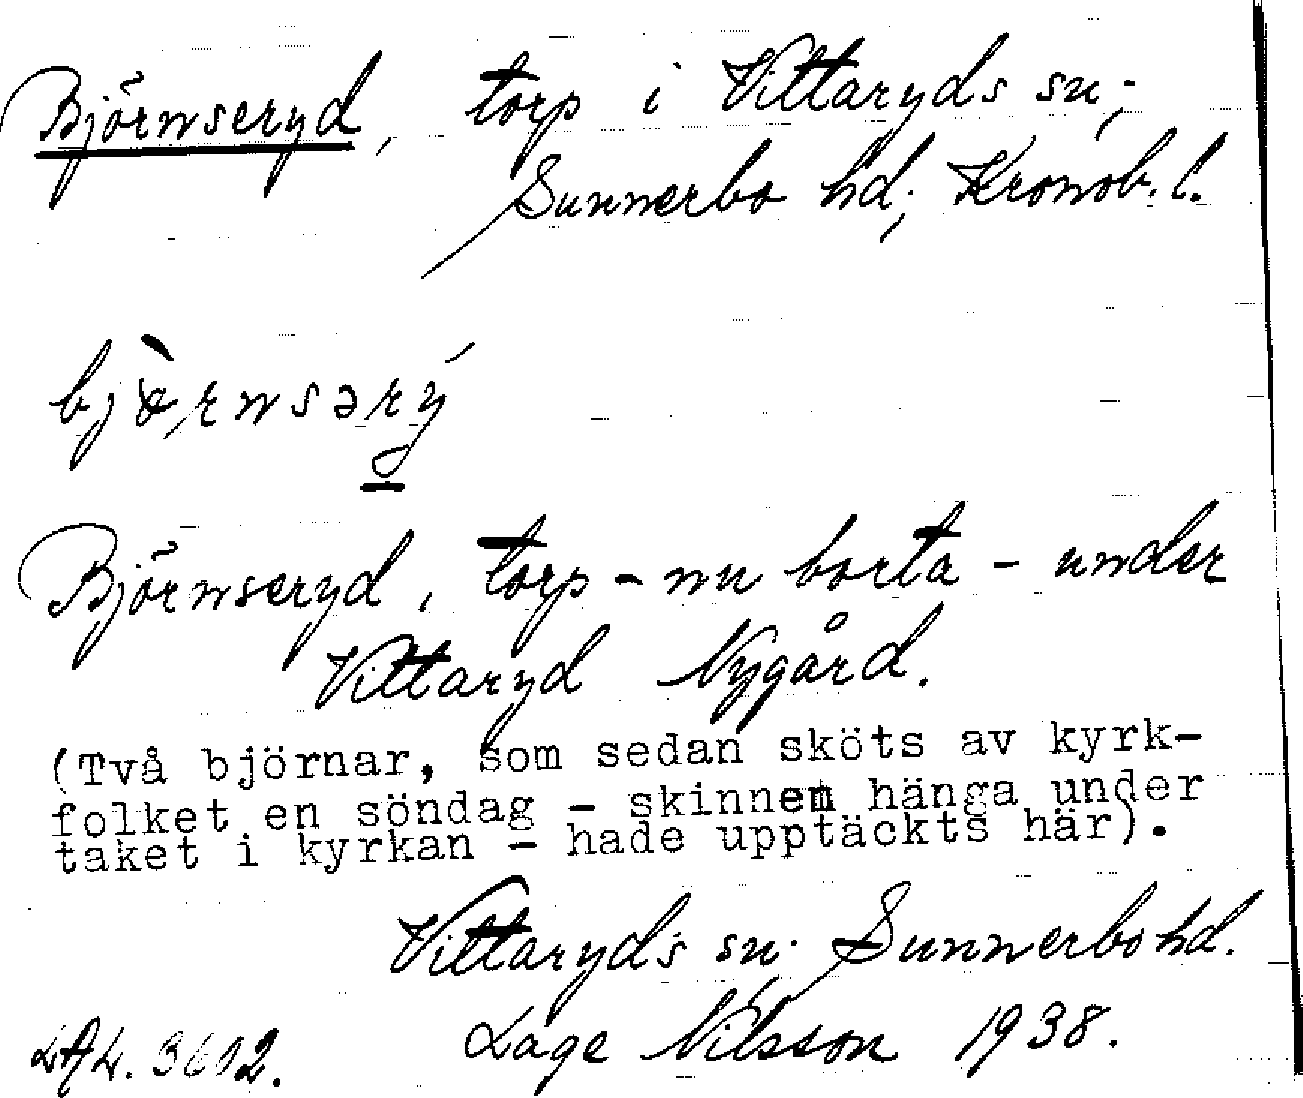 Björnseryd, torp i Vittaryds sn,
Sunnerbo hd, Kronob. l.
bjœ̀rnsərý
Björnseryd, torp - nu borta - under
Vittaryd Nygård.
(Två björnar, som sedan sköts av kyrk-
folket en söndag - skinnen hänga under
taket i kyrkan - hade upptäckts här).
Vittaryds sn. Sunnerbo hd.
LAL. 3602. Lage Nilsson 1938.